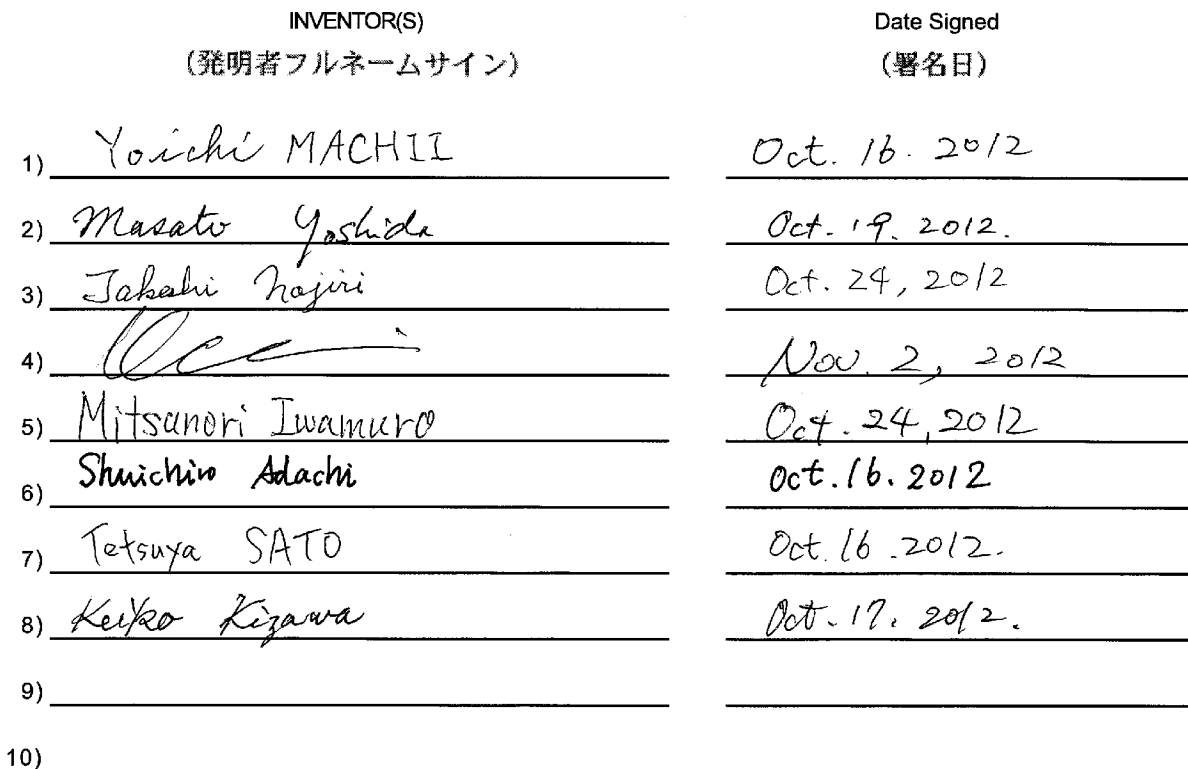 INVENTOR(S) Date Signed
(発明者フルネームサイン) (署名日)
1) Yoichi MACHII Oct. 16. 2012
2) Masato Yoshida Oct. 19. 2012.
3) Takeshi Nojiri Oct. 24, 2012
4) Nov. 2, 2012
5) Mitsunori Iwamuro Oct. 24, 2012
6) Shuichiro Adachi Oct. 16. 2012
7) Tetsuya SATO Oct. 16. 2012.
8) Keiko Kizawa Oct. 17. 2012.
9)
10)